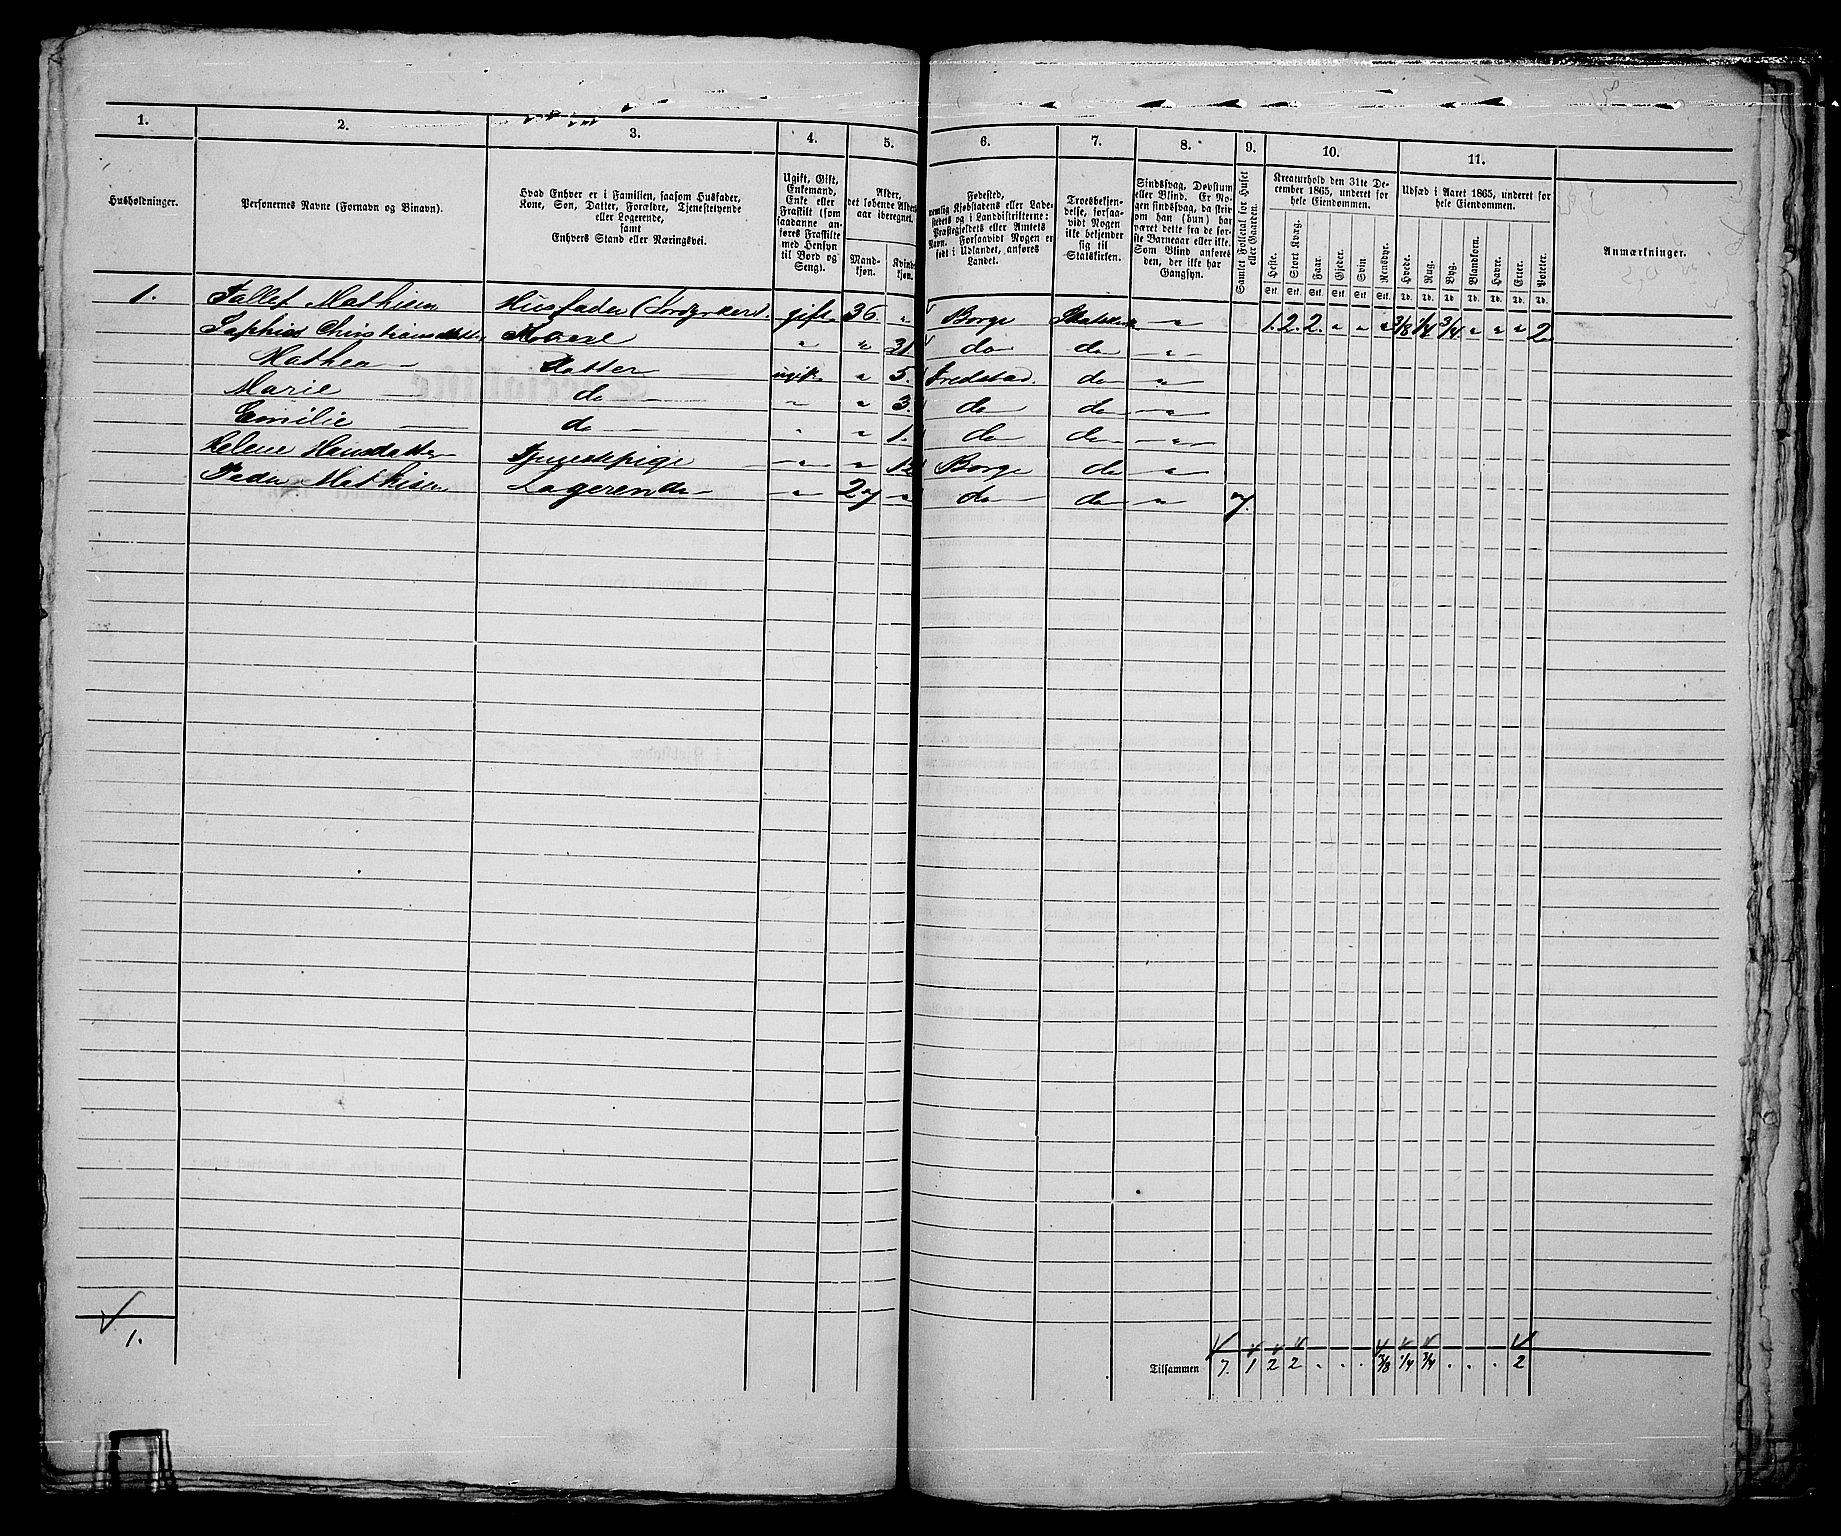 1. 2. 3. 4. 5. 6. 7. 8. 9. 10. 11.
Husholdninger.
Personernes Navne (Fornavn og Binavn).
Hvad Enhver er i Familien, saasom Husfader,
Kone, Søn, Datter, Forældre, Tjenestetyende
eller Logerende,
samt
Enhvers Stand eller Næringsvei.
Ugift, Gift,
Enkemand,
Enke eller
Fraskilt (som
saadanne an-
føres Fraskilte
med Hensyn
til Bord og
Seng).
Alder,
det løbende Alders-
aar iberegnet.
Mand-
kjøn.
Kvind-
kjøn.
Fødested,
nemlig Kjøbstadens eller Lade-
stedets og i Landdistrikterne:
Præstegjeldets eller Amtets
Navn. Forsaavidt Nogen er
født i Udlandet, anføres
Landet.
Troesbekjen-
delse, forsaa-
vidt Nogen
ikke bekjender
sig til
Statskirken.
Sindssvag, Døvstum
eller Blind. Er No-
gen sindssvag, da skriv
om han (hun) har
været dette fra de før-
ste Barneaar eller ikke.
Som Blind anføres
den, der ikke har
Gangsyn.
Samlet Folketal for Huset
eller Gaarden.
Kreaturhold den 31te De-
cember 1865, underet for
hele Eiendommen.
Heste. Stort Kvæg. Faar. Gjeder. Svin. Rensdyr.
Stk. Stk. Stk. Stk. Stk. Stk.
Udsæd i Aaret 1865, underet for
hele Eiendommen.
Hvede. Rug. Byg. Blandkorn. Havre. Erter. Poteter.
Td. Td. Td. Td. Td. Td. Td.
Anmærkninger.
1. Mathisen Husfader gift 36. " Borge Statskirk " 1. 2. 2. " " " 3/8 1/4 3/4 " " " 2
Christiansdatter Kone " " 31 do do "
Mathea Datter ugift " 5. Fredstad. do "
Marie do " " 3. do do "
Emilie do " " 1. do do "
Helene Hansdatter Tjenestepige " " 12 Borge do "
Peder Mathisen Logerende " 27 " do do " 7.
1.
Tilsammen 7. 1 2 2 . . . 3/8 1/4 3/4 . . . 2